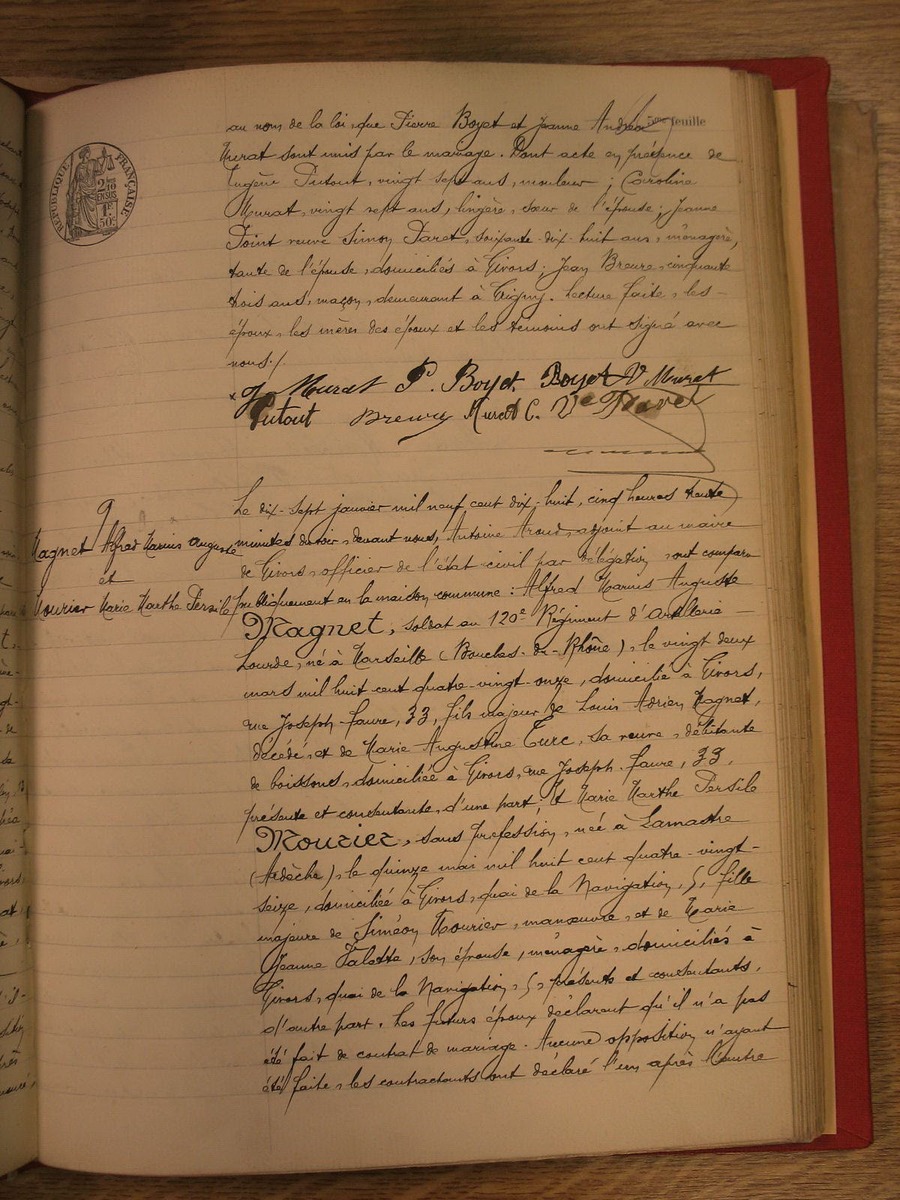 5me feuille
RÉPUBLIQUE FRANÇAISE
2/10 EN SUS
1F 50c
au nom de la loi, que Pierre Boyet et Jeanne Andréa
Murat sont unis par le mariage. Dont acte en présence de
Eugène Dutout, vingt sept ans, mouleur ; Caroline
Murat, vingt sept ans, lingère, sœur de l'épouse ; Jeanne
Point veuve Simon Paret, soixante-dix-huit ans, ménagère,
tante de l'épouse, domiciliés à Givors ; Jean Breure, cinquante
trois ans, maçon, demeurant à Grigny. Lecture faite, les
époux, les mères des époux et les témoins ont signé avec
nous./.
J. Murat P. Boyet Boyet V Murat
Dutout Breure Murat C. Ve
9
Magnet Alfred Marius Auguste
et
Mourier Marie Marthe Persile
Le dix-sept janvier mil neuf cent dix-huit, cinq heures trente
minutes du soir, devant nous, Antoine Aroud, adjoint au maire
de Givors, officier de l'état civil par délégation, ont comparu
publiquement en la maison commune : Alfred Marius Auguste
Magnet, soldat au 120e Régiment d'Artillerie
Lourde, né à Marseille (Bouches-du-Rhône), le vingt deux
mars mil huit cent quatre-vingt-onze, domicilié à Givors,
rue Joseph Faure, 33, fils majeur de Louis Adrien Magnet,
décédé, et de Marie Augustine Turc, sa veuve, débitante
de boissons, domiciliée à Givors, rue Joseph Faure, 33,
présente et consentante, d'une part. Et Marie Marthe Persile
Mourier, sans profession, née à Lamastre
(Ardèche), le quinze mai mil huit cent quatre-vingt-
seize, domiciliée à Givors, quai de la Navigation, 5, fille
majeure de Siméon Mourier, manœuvre, et de Marie
Jeanne Valette, son épouse, ménagère, domiciliés à
Givors, quai de la Navigation, 5, présents et consentants,
d'autre part. Les futurs époux déclarent qu'il n'a pas
été fait de contrat de mariage. Aucune opposition n'ayant
été faite, les contractants ont déclaré l'un après l'autre